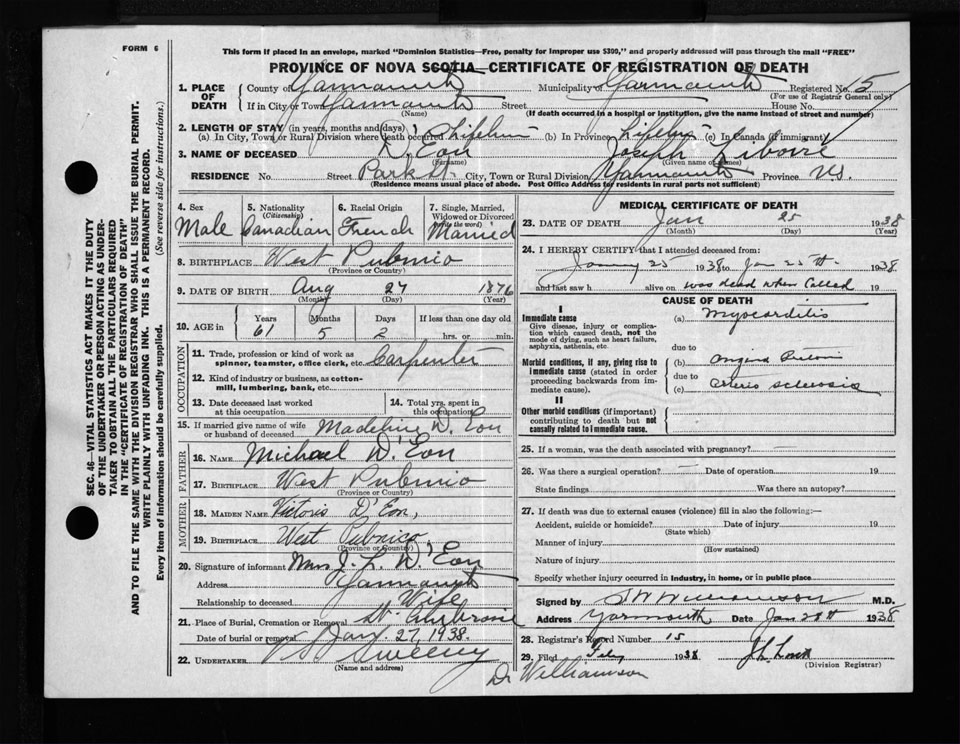 FORM 6
This form if placed in an envelope, marked "Dominion Statistics—Free, penalty for improper use $300," and properly addressed will pass through the mail "FREE"
PROVINCE OF NOVA SCOTIA—CERTIFICATE OF REGISTRATION OF DEATH
1. PLACE OF DEATH County of Yarmouth Municipality of Yarmouth Registered No. 15
(For use of Registrar General only)
If in City or Town Yarmouth Street House No.
(Name) (If death occurred in a hospital or institution, give the name instead of street and number)
2. LENGTH OF STAY (in years, months and days)
(a) In City, Town or Rural Division where death occurred Lifetime (b) In Province Lifetime (c) In Canada (if immigrant)
3. NAME OF DECEASED D'Eon Joseph
(Surname) (Given or names)
RESIDENCE No. Street Park St. City, Town or Rural Division Yarmouth Province N.S.
(Residence means usual place of abode. Post Office Address for residents in rural parts not sufficient)
SEC. 46—VITAL STATISTICS ACT MAKES IT THE DUTY
OF THE UNDERTAKER OR PERSON ACTING AS UNDER-
TAKER TO OBTAIN ALL THE PARTICULARS REQUIRED
IN THE "CERTIFICATE OF REGISTRATION OF DEATH"
AND TO FILE THE SAME WITH THE DIVISION REGISTRAR WHO SHALL ISSUE THE BURIAL PERMIT.
WRITE PLAINLY WITH UNFADING INK. THIS IS A PERMANENT RECORD.
Every item of information should be carefully supplied. (See reverse side for instructions.)
4. Sex 5. Nationality (Citizenship) 6. Racial Origin 7. Single, Married, Widowed or Divorced (write the word)
Male Canadian French Married
8. BIRTHPLACE West Pubnico
(Province or Country)
9. DATE OF BIRTH Aug 27 1876
(Month) (Day) (Year)
10. AGE in Years Months Days If less than one day old
61 5 2 hrs. or min.
OCCUPATION
11. Trade, profession or kind of work as spinner, teamster, office clerk, etc. Carpenter
12. Kind of industry or business, as cotton-mill, lumbering, bank, etc.
13. Date deceased last worked at this occupation 14. Total yrs. spent in this occupation
15. If married give name of wife or husband of deceased Madeline D. Eon
FATHER
16. NAME Michael D'Eon
17. BIRTHPLACE West Pubnico
(Province or Country)
MOTHER
18. MAIDEN NAME Victoria D'Eon,
19. BIRTHPLACE West Pubnico
(Province or Country)
20. Signature of informant Mrs J. L. D'Eon
Address Yarmouth
Relationship to deceased Wife
21. Place of Burial, Cremation or Removal St. Ambrose
Date of burial or removal Jan 27, 1938.
22. UNDERTAKER V S Sweeny
(Name and address)
MEDICAL CERTIFICATE OF DEATH
23. DATE OF DEATH Jan 25 1938
(Month) (Day) (Year)
24. I HEREBY CERTIFY that I attended deceased from:
25 1938 to Jan 25th 1938
and last saw h alive on was dead when called 19
CAUSE OF DEATH
Immediate cause (a) Myocarditis
Give disease, injury or complication which caused death, not the mode of dying, such as heart failure, asphyxia, asthenia, etc.
due to
Morbid conditions, if any, giving rise to immediate cause (stated in order proceeding backwards from immediate cause). (b) Angina
due to
(c) Arterio sclerosis
II
Other morbid conditions (if important) contributing to death but not causally related to immediate cause.
25. If a woman, was the death associated with pregnancy?
26. Was there a surgical operation? — Date of operation 19
State findings Was there an autopsy?
27. If death was due to external causes (violence) fill in also the following:—
Accident, suicide or homicide? Date of injury 19
(State which)
Manner of injury
(How sustained)
Nature of injury
Specify whether injury occurred in industry, in home, or in public place
Signed by Williamson M.D.
Address Yarmouth Date Jan 28th 1938
28. Registrar's Record Number 15
29. Filed Feby 1938
(Division Registrar)
Dr Williamson